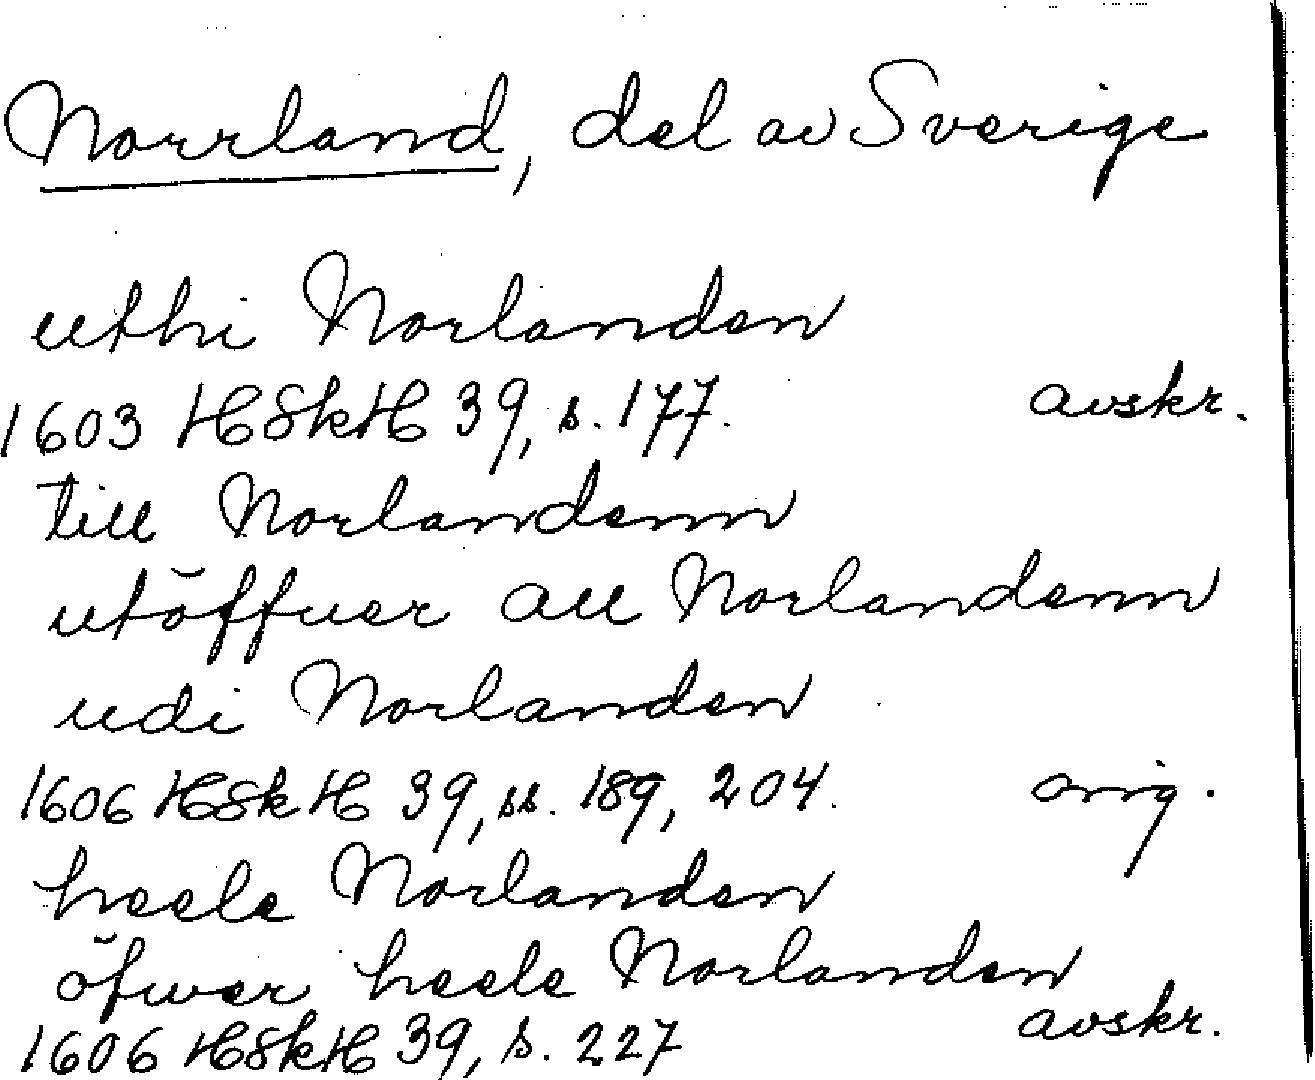 Norrland, del av Sverige
uthi Norlanden
1603 HSkH 39, s. 177. avskr.
till Norlandenn
utöffuer all Norlandenn
udi Norlanden
1606 HSkH 39, ss. 189, 204. orig.
heele Norlanden
öfwer heele Norlanden
1606 HSkH 39, s. 227 avskr.